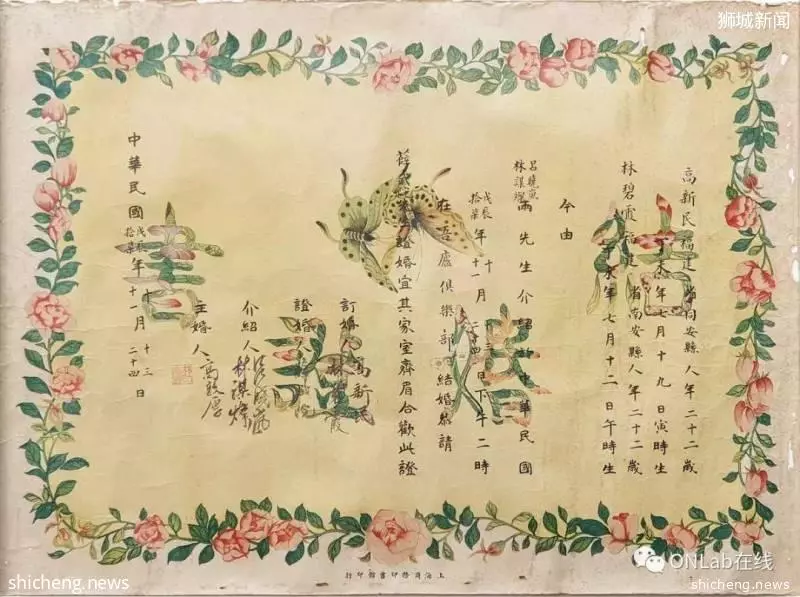 狮城新闻
結婚證書
高新民福建省同安縣人年二十二歲
丁未年七月十九日寅時生
林碧霞福建省南安縣人年二十二歲
丁未年七月十二日午時生
今由
呂毓
林謀燦
兩先生介紹於中華民國
戊辰
拾柒
年十月
十一月
十三
二十四
日下午二時
在吾廬俱樂部結婚恭請
薛武院先生證婚宜其家室齊眉合歡此證
訂婚人高新民
林碧霞
證婚人
介紹人
林謀燦
主婚人高敦厚
中華民國
戊辰
拾柒
年
十
十一月
十三
二十四日
上海商務印書館印行
shicheng.news
shicheng.news
ONLab在线
shicheng.news